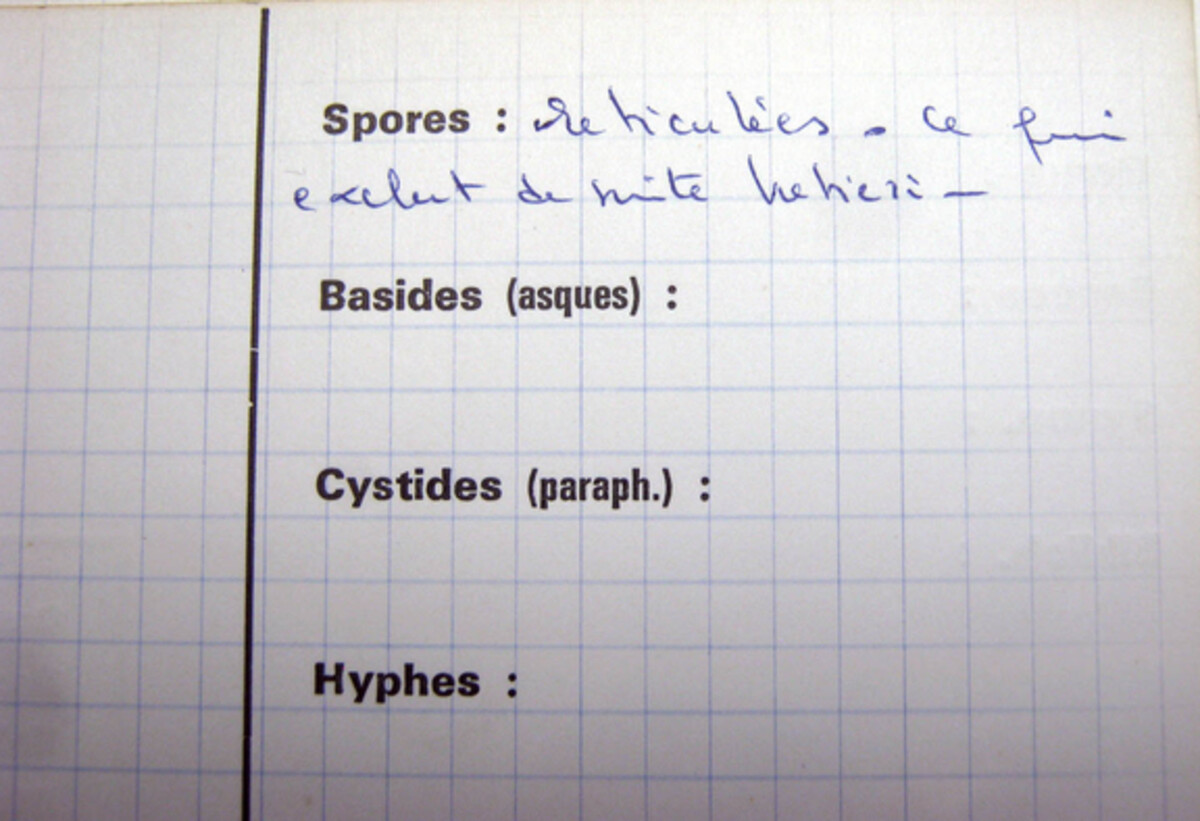 Spores : reticulées - ce qui
exclut de suite
Basides (asques) :
Cystides (paraph.) :
Hyphes :